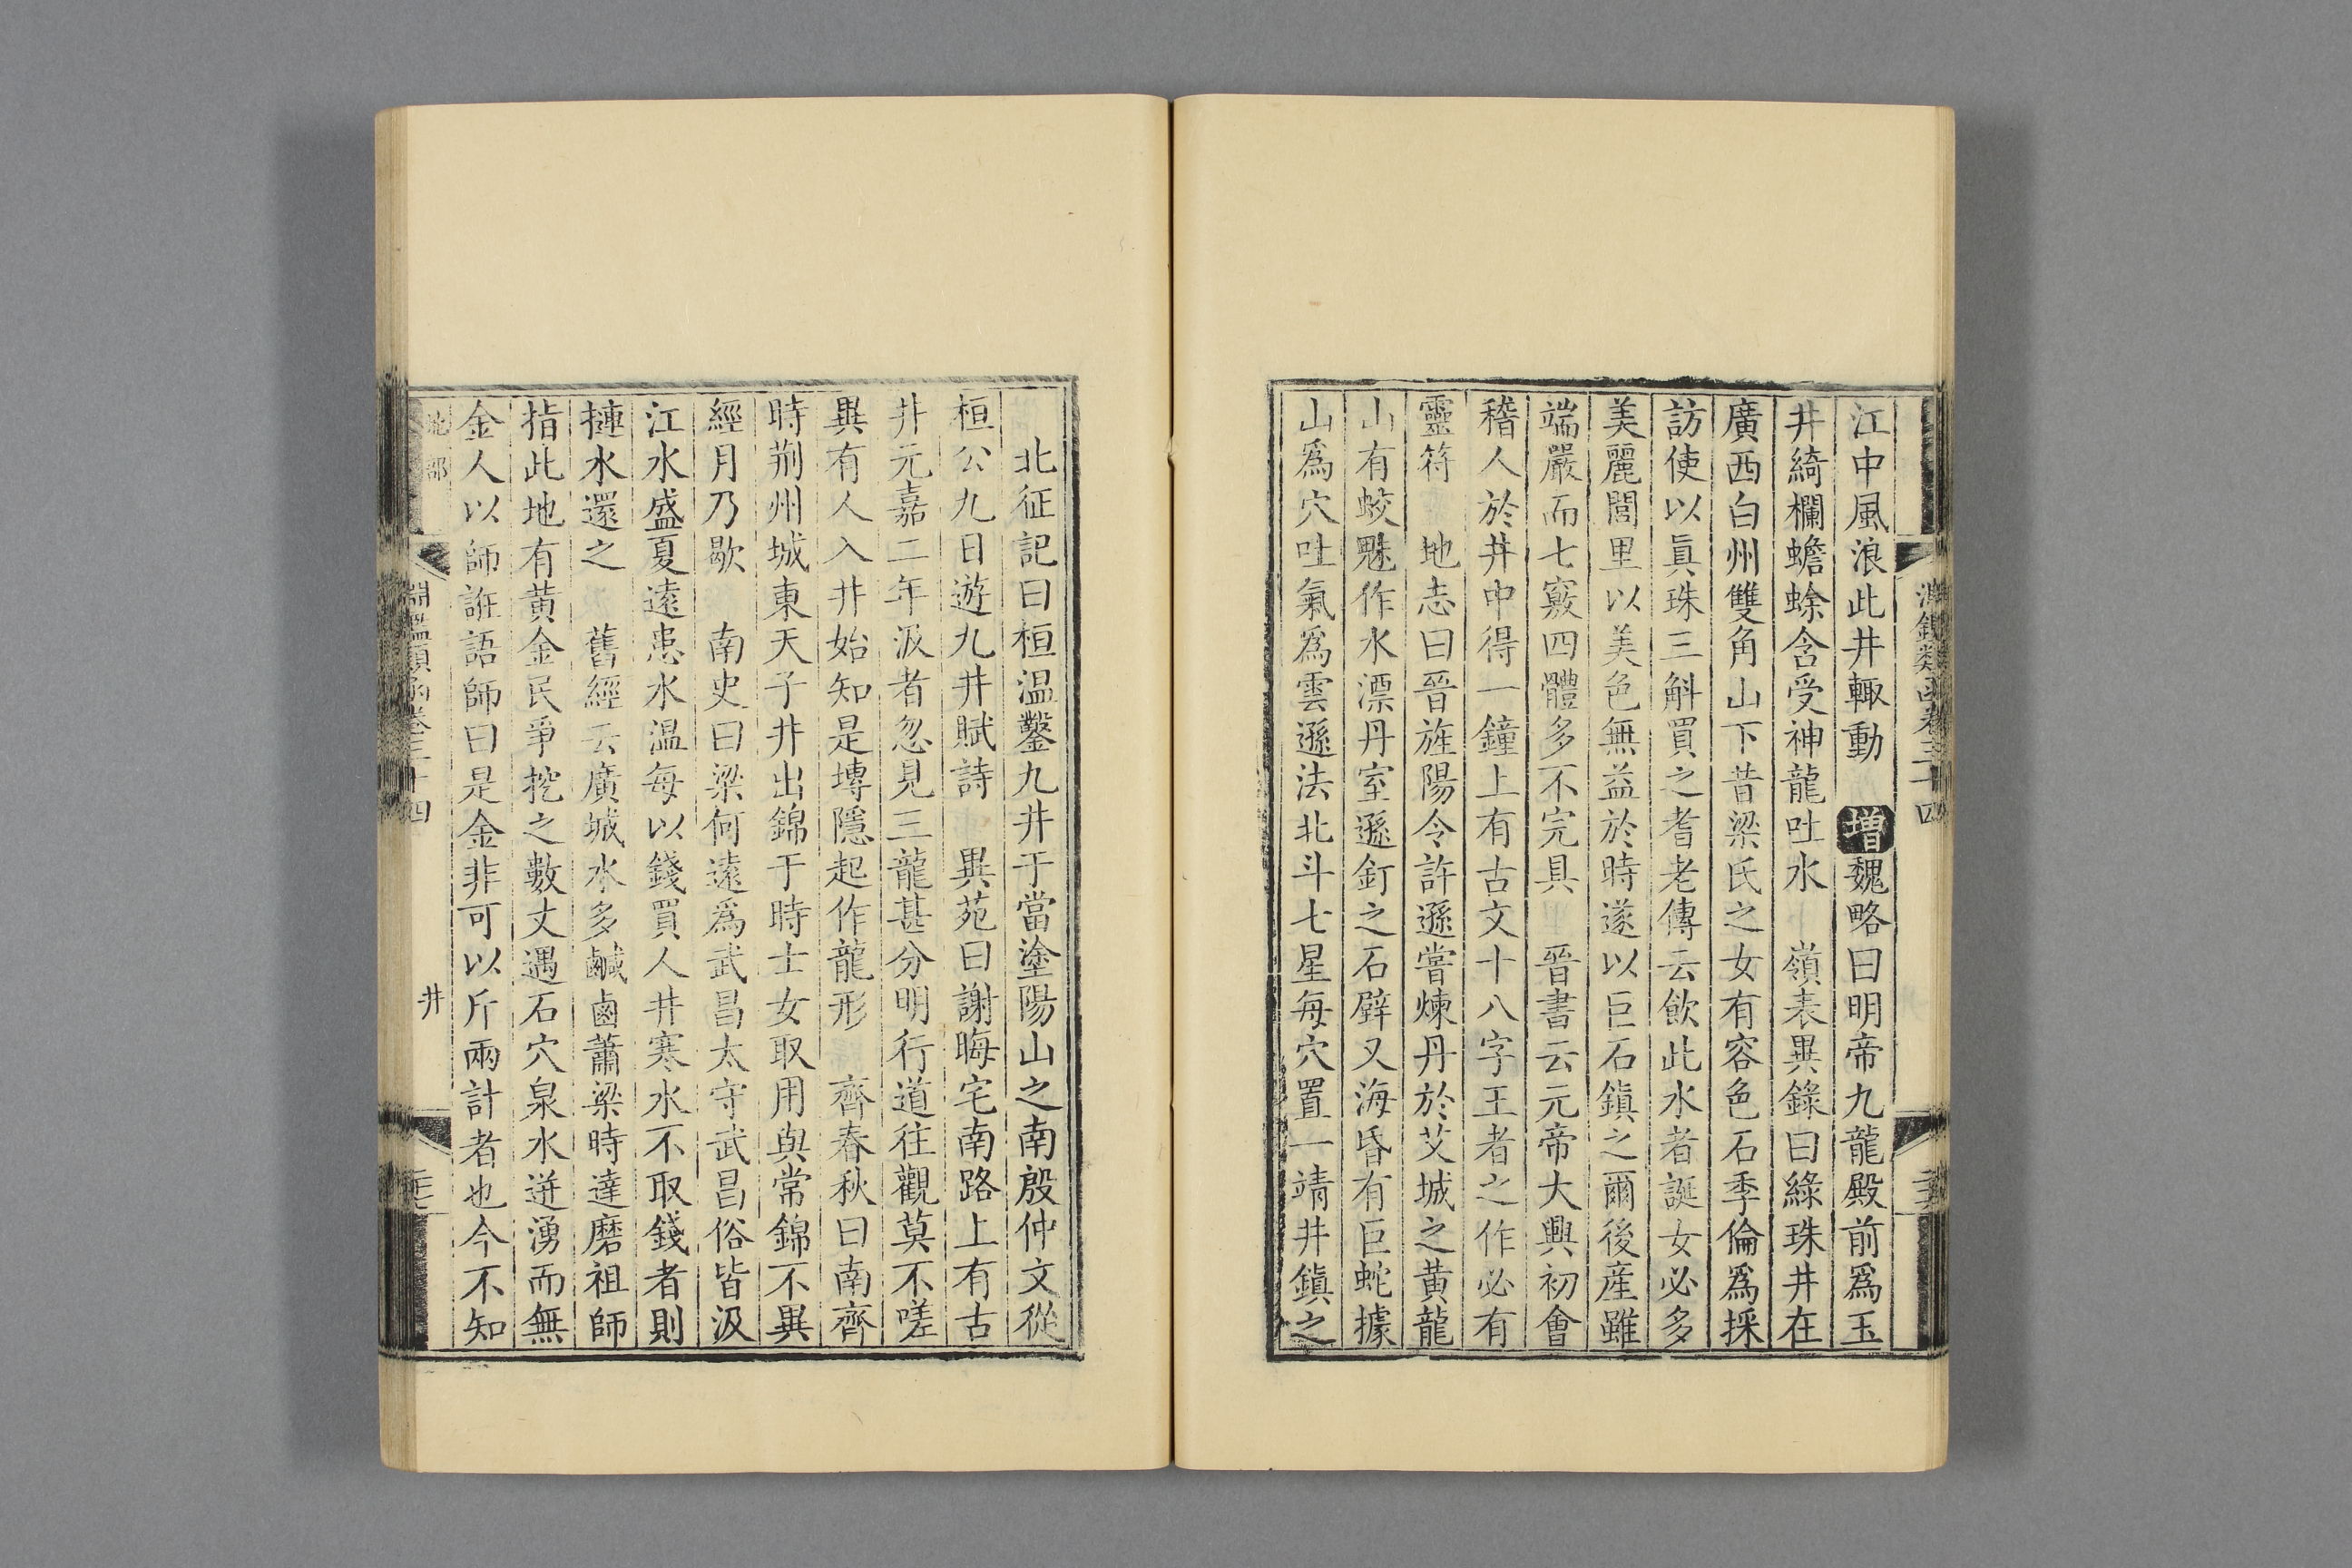 淵鑑類函卷三十四
江中風浪此井輙動　增魏略曰明帝九龍殿前爲玉
井綺欄蟾蜍含受神龍吐水　嶺表異錄曰綠珠井在
廣西白州雙角山下昔梁氏之女有容色石季倫爲採
訪使以眞珠三斛買之耆老傳云飮此水者誕女必多
美麗閭里以美色無益於時遂以巨石鎭之爾後産雖
端嚴而七竅四體多不完具　晉書云元帝大興初會
稽人於井中得一鐘上有古文十八字王者之作必有
靈符　地志曰晉旌陽令許遜嘗煉丹於艾城之黃龍
山有蛟魅作水漂丹室遜釘之石壁又海昏有巨蛇據
山爲穴吐氣爲雲遜法北斗七星每穴置一靖井鎭之
北征記曰桓温鑿九井于當塗陽山之南殷仲文從
桓公九日遊九井賦詩　異苑曰謝晦宅南路上有古
井元嘉二年汲者忽見三龍甚分明行道往觀莫不嗟
異有人入井始知是塼隱起作龍形　齊春秋曰南齊
時荆州城東天子井出錦于時士女取用與常錦不異
經月乃歇　南史曰梁何遠爲武昌太守武昌俗皆汲
江水盛夏遠患水温每以錢買人井寒水不取錢者則
摙水還之　舊經云廣城水多鹹鹵蕭梁時達磨祖師
指此地有黃金民爭挖之數丈遇石穴泉水迸湧而無
金人以師誑語師曰是金非可以斤兩計者也今不知
地部
淵鑑類函卷三十四
井